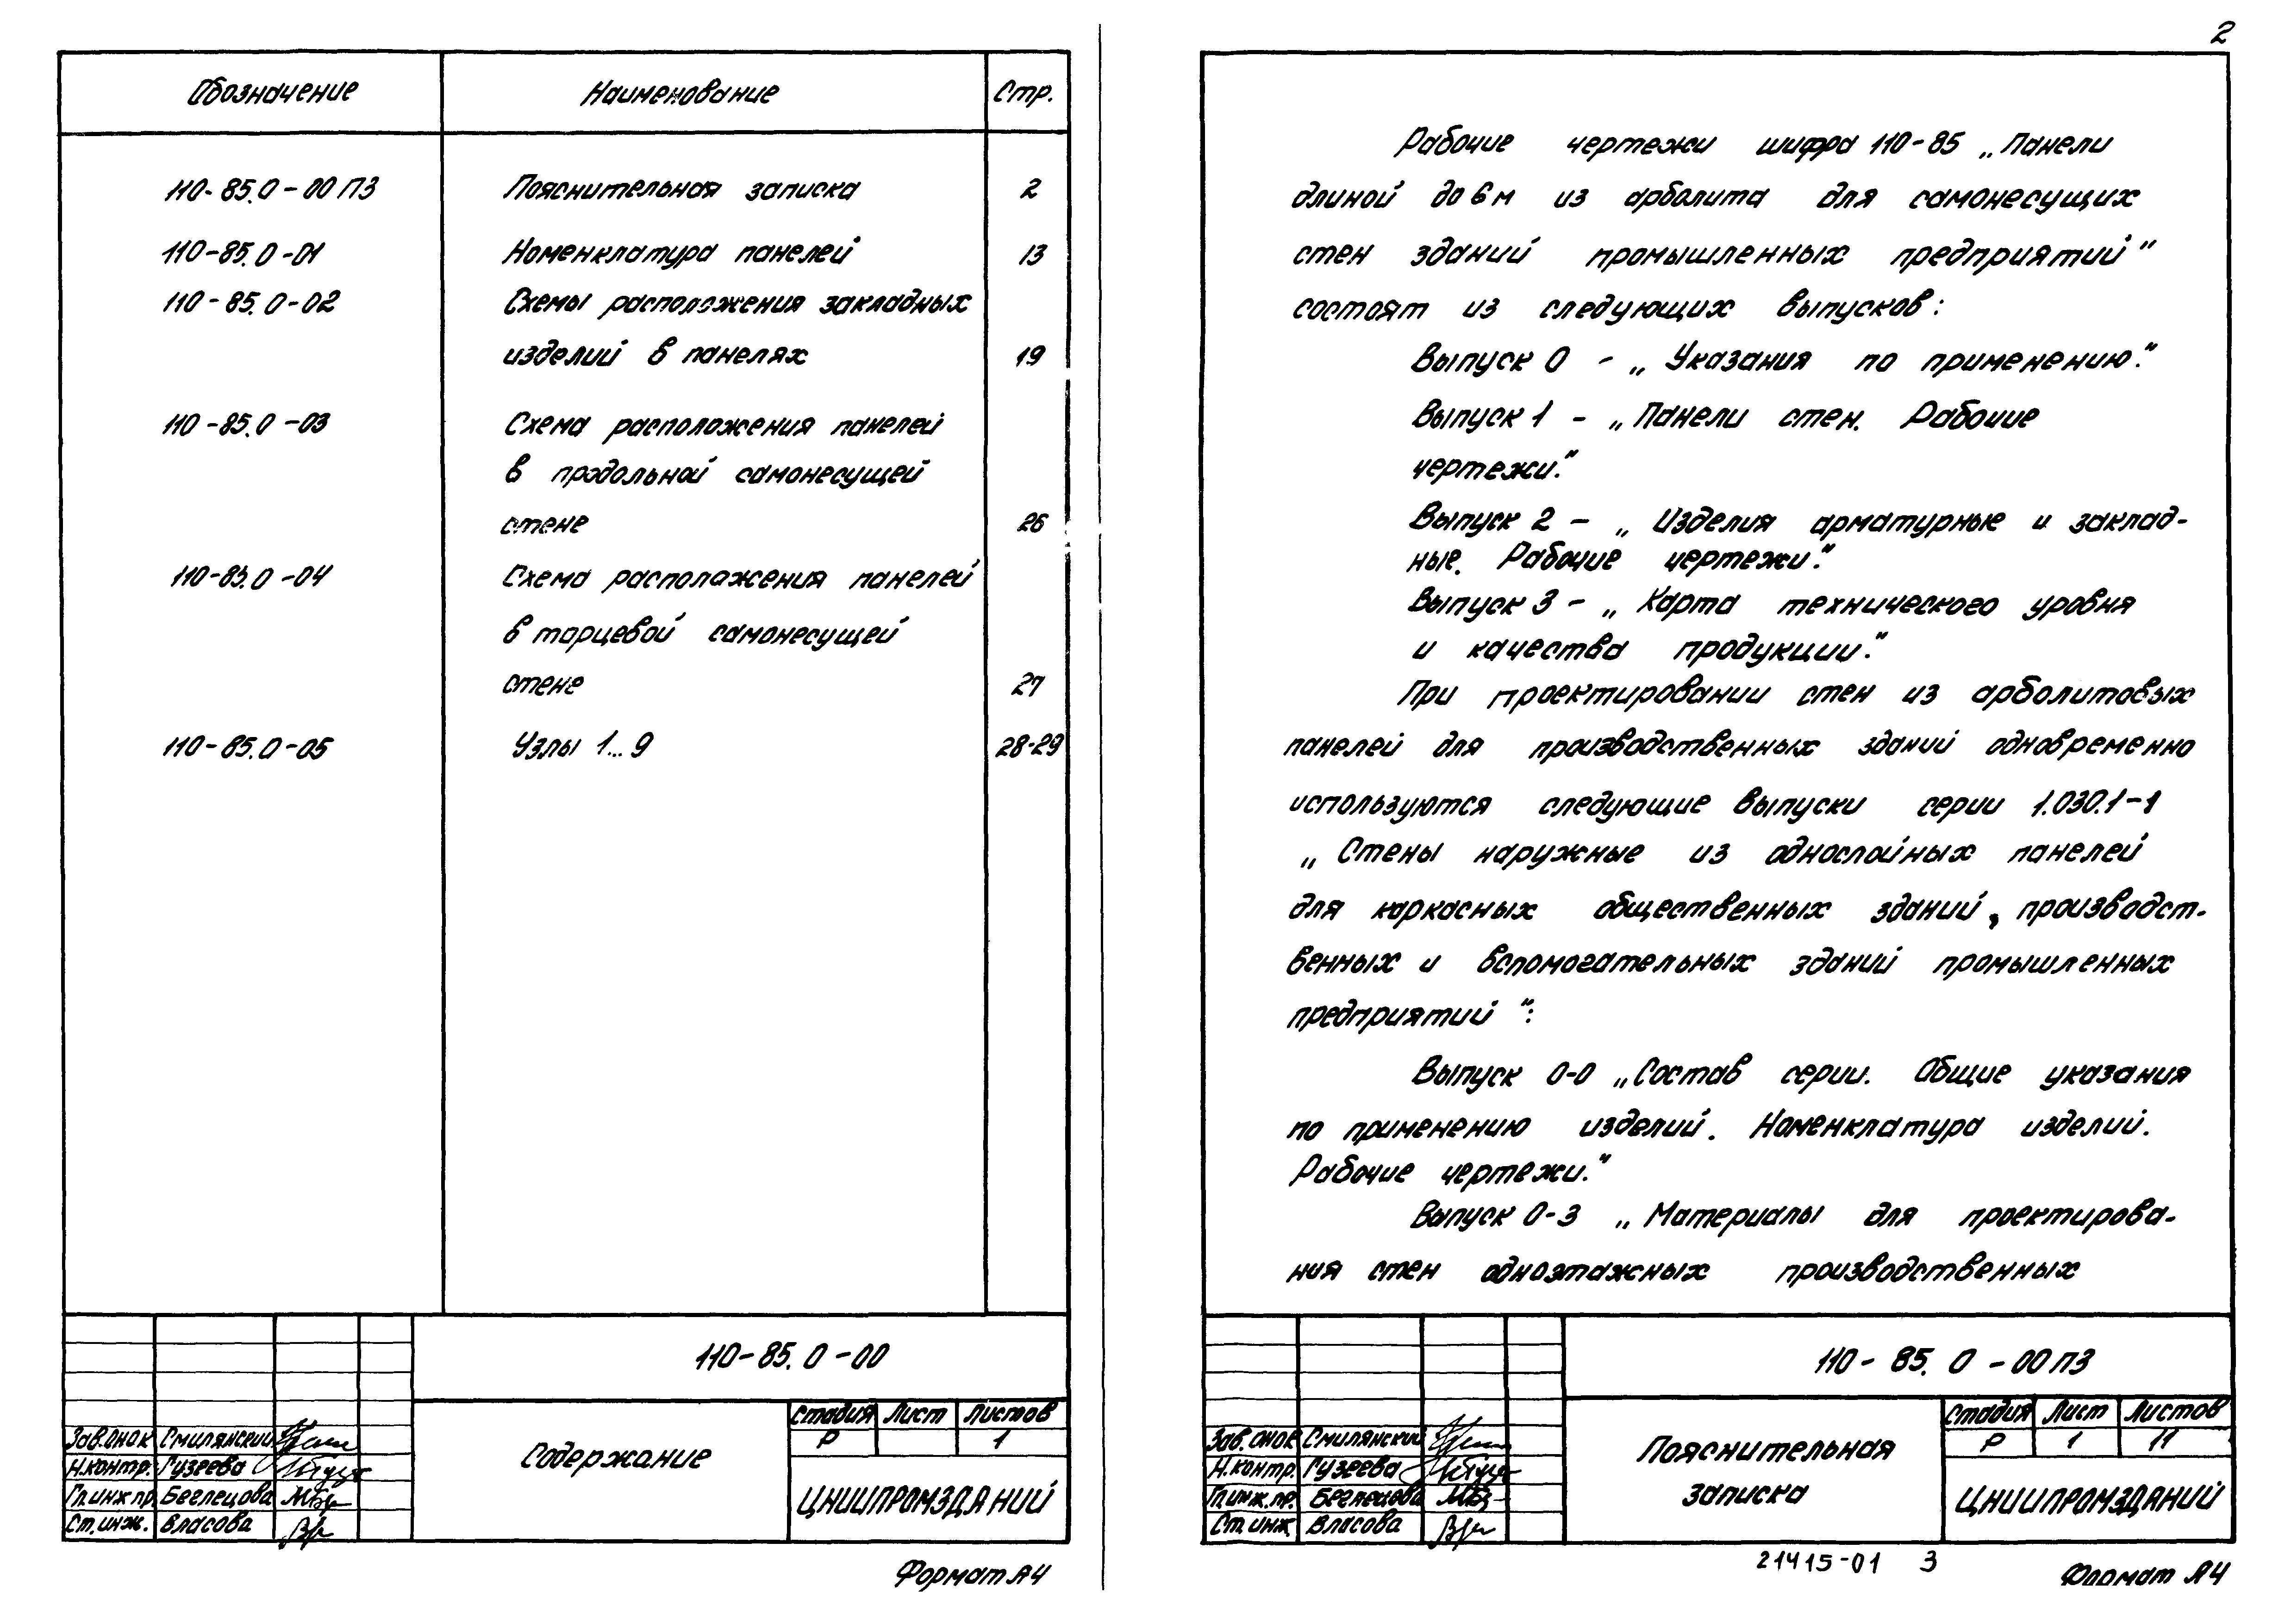 Обозначение Наименование Стр.
110-85.0-00 ПЗ Пояснительная записка 2
110-85.0-01 Номенклатура панелей 13
110-85.0-02 Схемы расположения закладных
изделий в панелях 19
110-85.0-03 Схема расположения панелей
в продольной самонесущей
стене 26
110-85.0-04 Схема расположения панелей
в торцевой самонесущей
стене 27
110-85.0-05 Узлы 1...9 28-29
110-85.0-00
Стадия Лист Листов
Р 1
Содержание
ЦНИИПРОМЗДАНИЙ
Зав.онок Смилянский
Н.контр. Гузеева
Гл.инж.пр. Беглецова
Ст.инж. Власова
Формат А4
2
Рабочие чертежи шифра 110-85 „Панели
длиной до 6 м из арболита для самонесущих
стен зданий промышленных предприятий"
состоят из следующих выпусков:
Выпуск 0 - „Указания по применению."
Выпуск 1 - „Панели стен. Рабочие
чертежи."
Выпуск 2 - „Изделия арматурные и заклад-
ные. Рабочие чертежи."
Выпуск 3 - „Карта технического уровня
и качества продукции."
При проектировании стен из арболитовых
панелей для производственных зданий одновременно
используются следующие выпуски серии 1.030.1-1
„Стены наружные из однослойных панелей
для каркасных общественных зданий, производст-
венных и вспомогательных зданий промышленных
предприятий":
Выпуск 0-0 „Состав серии. Общие указания
по применению изделий. Номенклатура изделий.
Рабочие чертежи."
Выпуск 0-3 „Материалы для проектирова-
ния стен одноэтажных производственных
110-85.0-00 ПЗ
Стадия Лист Листов
Р 1 11
Пояснительная
записка
ЦНИИПРОМЗДАНИЙ
Зав.онок Смилянский
Н.контр. Гузеева
Гл.инж.пр. Беглецова
Ст.инж. Власова
21415-01 3
Формат А4